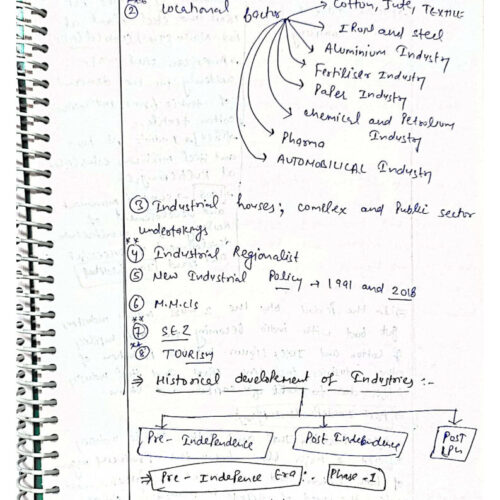 ② Locational factor → Cotton, Jute, TEXTILE
IRon and steel
Aluminium Industry
Fertiliser Industry
Paper Industry
chemical and Petroleum Industry
Pharma
AUTOMOBILICAL Industry
③ Industrial houses; complex and Public sector
undertakngs
** ④ Industrial Regionalist
⑤ New Industrial Policy → 1991 and 2018
⑥ M.M.Cls
** ⑦ S.E.Z
** ⑧ TOURISM
⇒ Historical developement of Industries :-
Pre-Independence Post Independence POST LPG
⇒ Pre-Indepence Era :. Phase-I